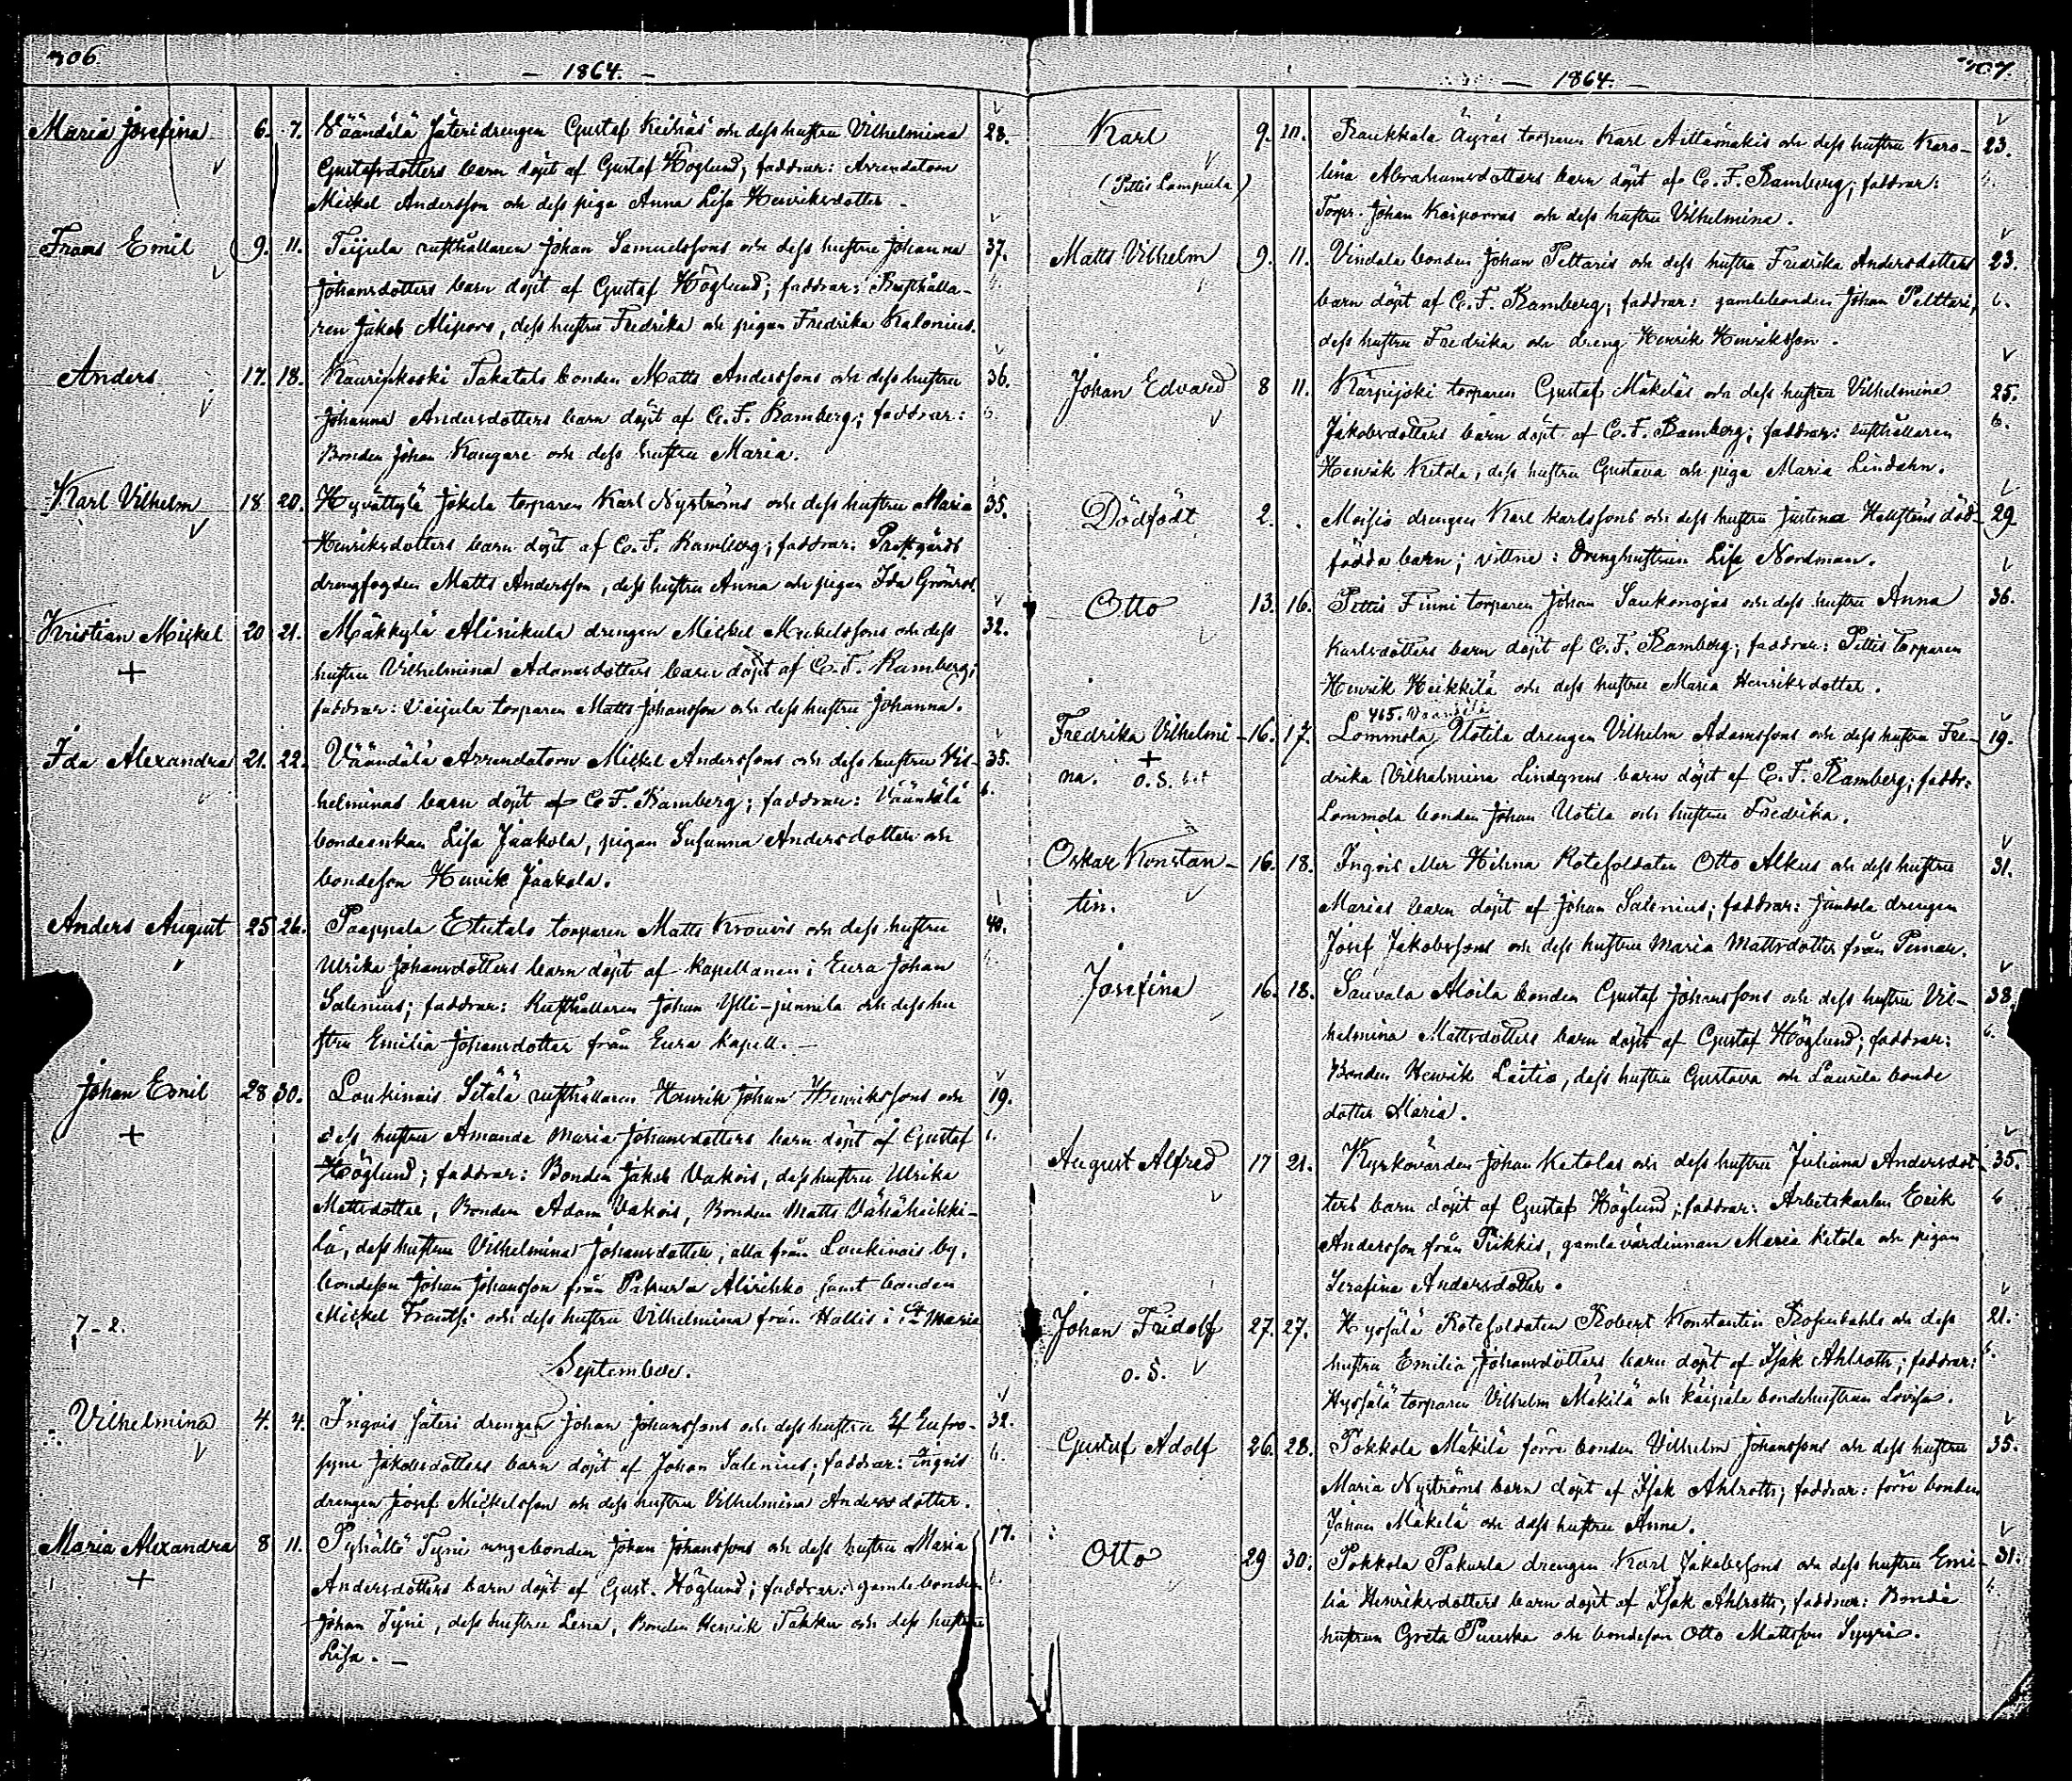 306.
— 1864. —
Maria Josefina 6. 7. Väändälä Säteri drengen Gustaf Keihäs och dess hustru Vilhelmina 28.
Gustafsdotters barn döpt af Gustaf Höglund; faddrar: Arrendatorn
Mickel Andersson och dess piga Anna Lisa Henriksdotter.
Frans Emil 9. 11. Teijula rusthållaren Johan Samuelssons och dess hustru Johanna 37.
Johansdotters barn döpt af Gustaf Höglund; faddrar: Rusthålla-
ren Jakob Aliporo, dess hustru Fredrika och pigan Fredrika Kalonius.
Anders 17. 18. Takatalo bonden Matts Anderssons och dess hustru 36.
Johanna Andersdotters barn döpt af C. F. Bamberg; faddrar: 6.
Bonden Johan Kangare och dess hustru Maria.
Karl Vilhelm 18 20. Hyvättylä Jokela torparen Karl Nyströms och dess hustru Maria 35.
Henriksdotters barn döpt af C. F. Bamberg; faddrar: Prostgårds
drengfogden Matts Andersson, dess hustru Anna och pigan Ida Grönros.
Kristian Mickel 20 21. Mäkkylä Alinikula drengen Mickel Mickelssons och dess 32.
+ hustru Vilhelmina Adamsdotters barn döpt af C. F. Bamberg;
faddrar: torparen Matts Johansson och dess hustru Johanna.
Ida Alexandra 21. 22. Väändälä Arrendatorn Mickel Anderssons och dess hustru Vil- 35.
helminas barn döpt af C. F. Bamberg; faddrar: Väändälä 6.
bondeenkan Lisa Jaakola, pigan Susanna Andersdotter och
bondeson Henrik Jaakola.
Anders August 25 26. Paappala Etutalo torparen Matts Krouvis och dess hustru 40.
Ulrika Johansdotters barn döpt af kapellanen i Eura Johan
Salenius; faddrar: Rusthållaren Johan Ylli-junnila och dess hu
stru Emilia Johansdotter från Eura kapell. —
Johan Emil 28 30. Loukinais Sitälä rusthållaren Henrik Johan Henrikssons och 19.
+ dess hustru Amanda Maria Johansdotters barn döpt af Gustaf 6.
Höglund; faddrar: Bonden Jakob Vakois, dess hustru Ulrika
Mattsdotter, Bonden Adam Vakois, Bonden Matts Vähäheikki-
lä, dess hustru Vilhelmina Johansdotter, alla från Loukinais by,
bondeson Johan Johansson från Pakurla Alirihko samt bonden
7-2. Mickel Frantsi och dess hustru Vilhelmina från Hallis i St Marie
September.
Vilhelmina 4. 4. Ingois Säteri drengen Johan Johanssons och dess hustru Eufro- 32.
syne Jakobsdotters barn döpt af Johan Salenius; faddrar: Ingois 6.
drengen Josef Mickelsson och dess hustru Vilhelmina Andersdotter.
Maria Alexandra 8 11. Pyhältö Tyni ungebonden Johan Johanssons och dess hustru Maria 17.
+ Andersdotters barn döpt af Gust. Höglund; faddrar: gamlebonden
Johan Tyni, dess hustru Lena, Bonden Henrik Takku och dess hustru
Lisa. —
307.
— 1864. —
Karl 9. 10. Raukkala Äyräs torparen Karl Aittamäkis och dess hustru Karo- 23.
(Pettis Lampula) lina Abrahamsdotters barn döpt af C. F. Bamberg; faddrar:
Torpr. Johan och dess hustru Vilhelmina.
Matts Vilhelm 9. 11. Vindala bonden Johan Peltaris och dess hustru Fredrika Andersdotters 23.
barn döpt af C. F. Bamberg; faddrar: gamlebonden Johan Pelttari, 6.
dess hustru Fredrika och dreng Henrik Henriksson.
Johan Edvard 8 11. Karpijoki torparen Gustaf Mäkiläs och dess hustru Vilhelmina 25.
Jakobsdotters barn döpt af C. F. Bamberg; faddrar: rusthållaren 6.
Henrik Ketola, dess hustru Gustava och piga Maria Lindahn.
Dödfödt 2. . Moisio drengen Karl Karlssons och dess hustru Justina Hellstens död- 29
födda barn; vittne: Drenghustrun Lisa Nordman.
Otto 13. 16. Pettis Finni torparen Johan Saukonojas och dess hustru Anna 36.
Karlsdotters barn döpt af C. F. Bamberg; faddrar: Pettis torparen
Henrik Heikkilä och dess hustru Maria Henriksdotter.
465.
Fredrika Vilhelmi- 16. 17. Lommola Uotila drengen Vilhelm Adamssons och dess hustru Fre- 19.
+
na. o. S. drika Vilhelmina Lindgrens barn döpt af C. F. Bamberg; faddr:
Lommola bonden Johan Uotila och hustru Fredrika.
Oskar Konstan- 16. 18. Ingois eller Hihna Rotesoldaten Otto Alkus och dess hustru 31.
tin. Marias barn döpt af Johan Salenius; faddrar: Juntola drengen
Josef Jakobssons och dess hustru Maria Mattsdotter från Pemar.
Josefina 16. 18. Sauvala Aloila bonden Gustaf Johanssons och dess hustru Vil- 38.
helmina Mattsdotters barn döpt af Gustaf Höglund; faddrar: 6.
Bonden Henrik Laitio, dess hustru Gustava och Laurila bonde
dotter Maria.
August Alfred 17 21. Kyrkovärden Johan Ketolas och dess hustru Juliana Andersdot- 35.
ters barn döpt af Gustaf Höglund; faddrar: Arbetskarlen Erik 6
Andersson från Piikkis, gamla värdinnan Maria Ketola och pigan
Serafina Andersdotter.
Johan Fridolf 27. 27. Hypöälä Rotesoldaten Robert Konstantin Rosendahls och dess 21.
o. S. hustru Emilia Johansdotters barn döpt af Isak Ahlroth; faddrar: 6.
torparen Vilhelm Mäkilä och bondehustrun Lovisa.
Gustaf Adolf 26. 28. Pokkola Mäkilä förre bonden Vilhelm Johanssons och dess hustru 35.
Maria Nyströms barn döpt af Isak Ahlroth; faddrar: förre bonden
Johan Mäkilä och dess hustru Anna.
Otto 29 30. Pokkola Pakurla drengen Karl Jakobssons och dess hustru Emi- 31.
lia Henriksdotters barn döpt af Isak Ahlroth; faddrar: Bonde
hustrun Greta Puuska och bondeson Otto Mattsson